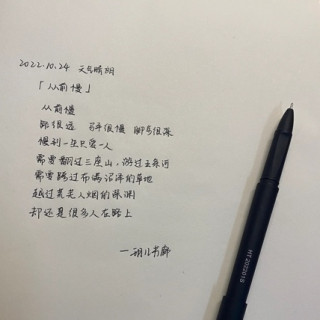 2022.10.24 天气晴朗
「从前慢」
从前慢
路很远 马车很慢 脚步很深
慢到一生只爱一人
需要翻过三座山，游过五条河
需要踏过布满沼泽的草地
越过荒芜人烟的深渊
却还是很多人在路上